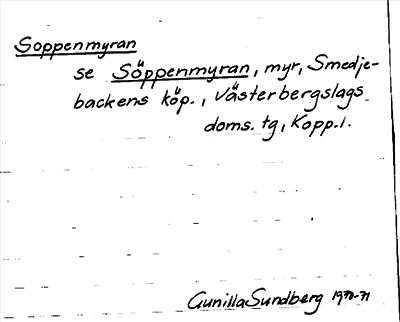 Soppenmyran
se Söppenmyran, myr, Smedje-
backens köp., Västerbergslags
doms. tg, Kopp. l.
Gunilla Sundberg 1970-71